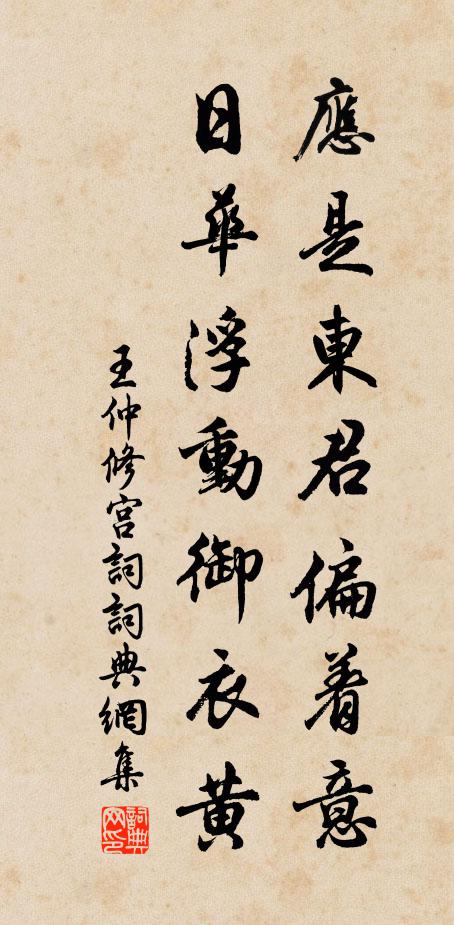 應是東君偏着意
日華浮動御衣黃
王仲修宮詞詞典網集
詞典网印